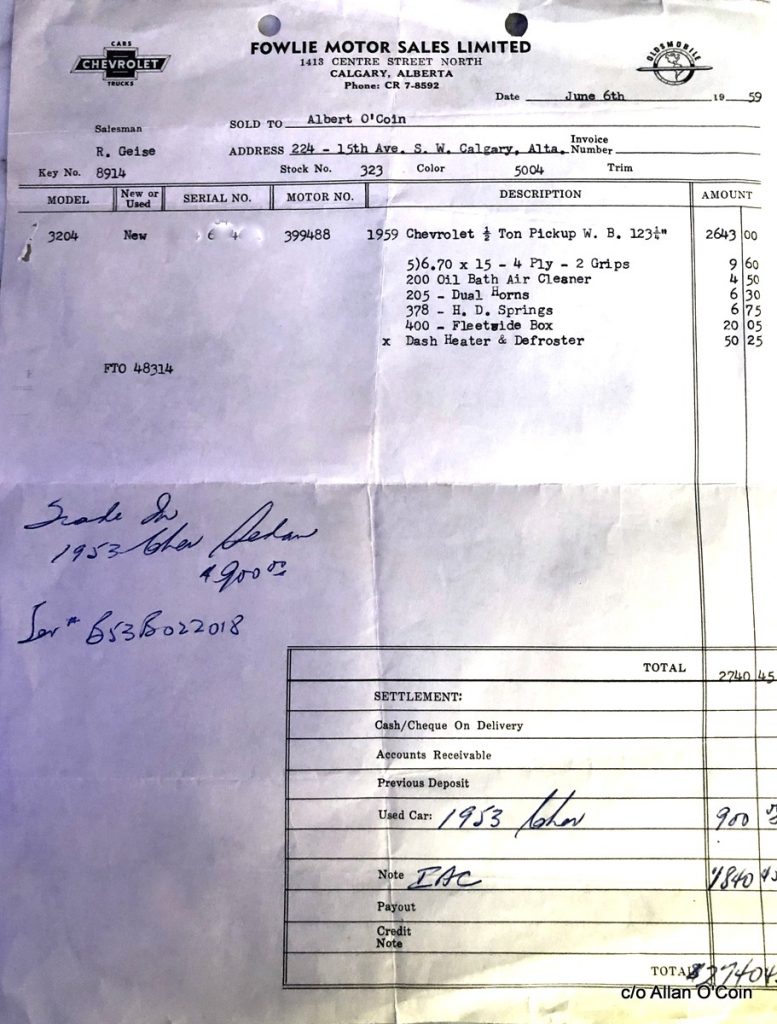 CARS
CHEVROLET
TRUCKS
FOWLIE MOTOR SALES LIMITED
1413 CENTRE STREET NORTH
CALGARY, ALBERTA
Phone: CR 7-8592
OLDSMOBILE
Date June 6th 19 59
Salesman
SOLD TO Albert O'Coin
R. Geise
ADDRESS 224 - 15th Ave. S. W. Calgary, Alta. Invoice Number
Key No. 8914 Stock No. 323 Color 5004 Trim
MODEL New or Used SERIAL NO. MOTOR NO. DESCRIPTION AMOUNT
3204 New 6 4 399488 1959 Chevrolet ½ Ton Pickup W. B. 123¼" 2643 00
5)6.70 x 15 - 4 Ply - 2 Grips 9 60
200 Oil Bath Air Cleaner 4 50
205 - Dual Horns 6 30
378 - H. D. Springs 6 75
400 - Fleetside Box 20 05
x Dash Heater & Defroster 50 25
FTO 48314
Trade In
1953 Chev Sedan
$900 00
Ser # B53B022018
TOTAL 2740 45
SETTLEMENT:
Cash/Cheque On Delivery
Accounts Receivable
Previous Deposit
Used Car: 1953 Chev 900 00
Note IAC 1840 45
Payout
Credit
Note
TOTAL $2740 4
c/o Allan O'Coin